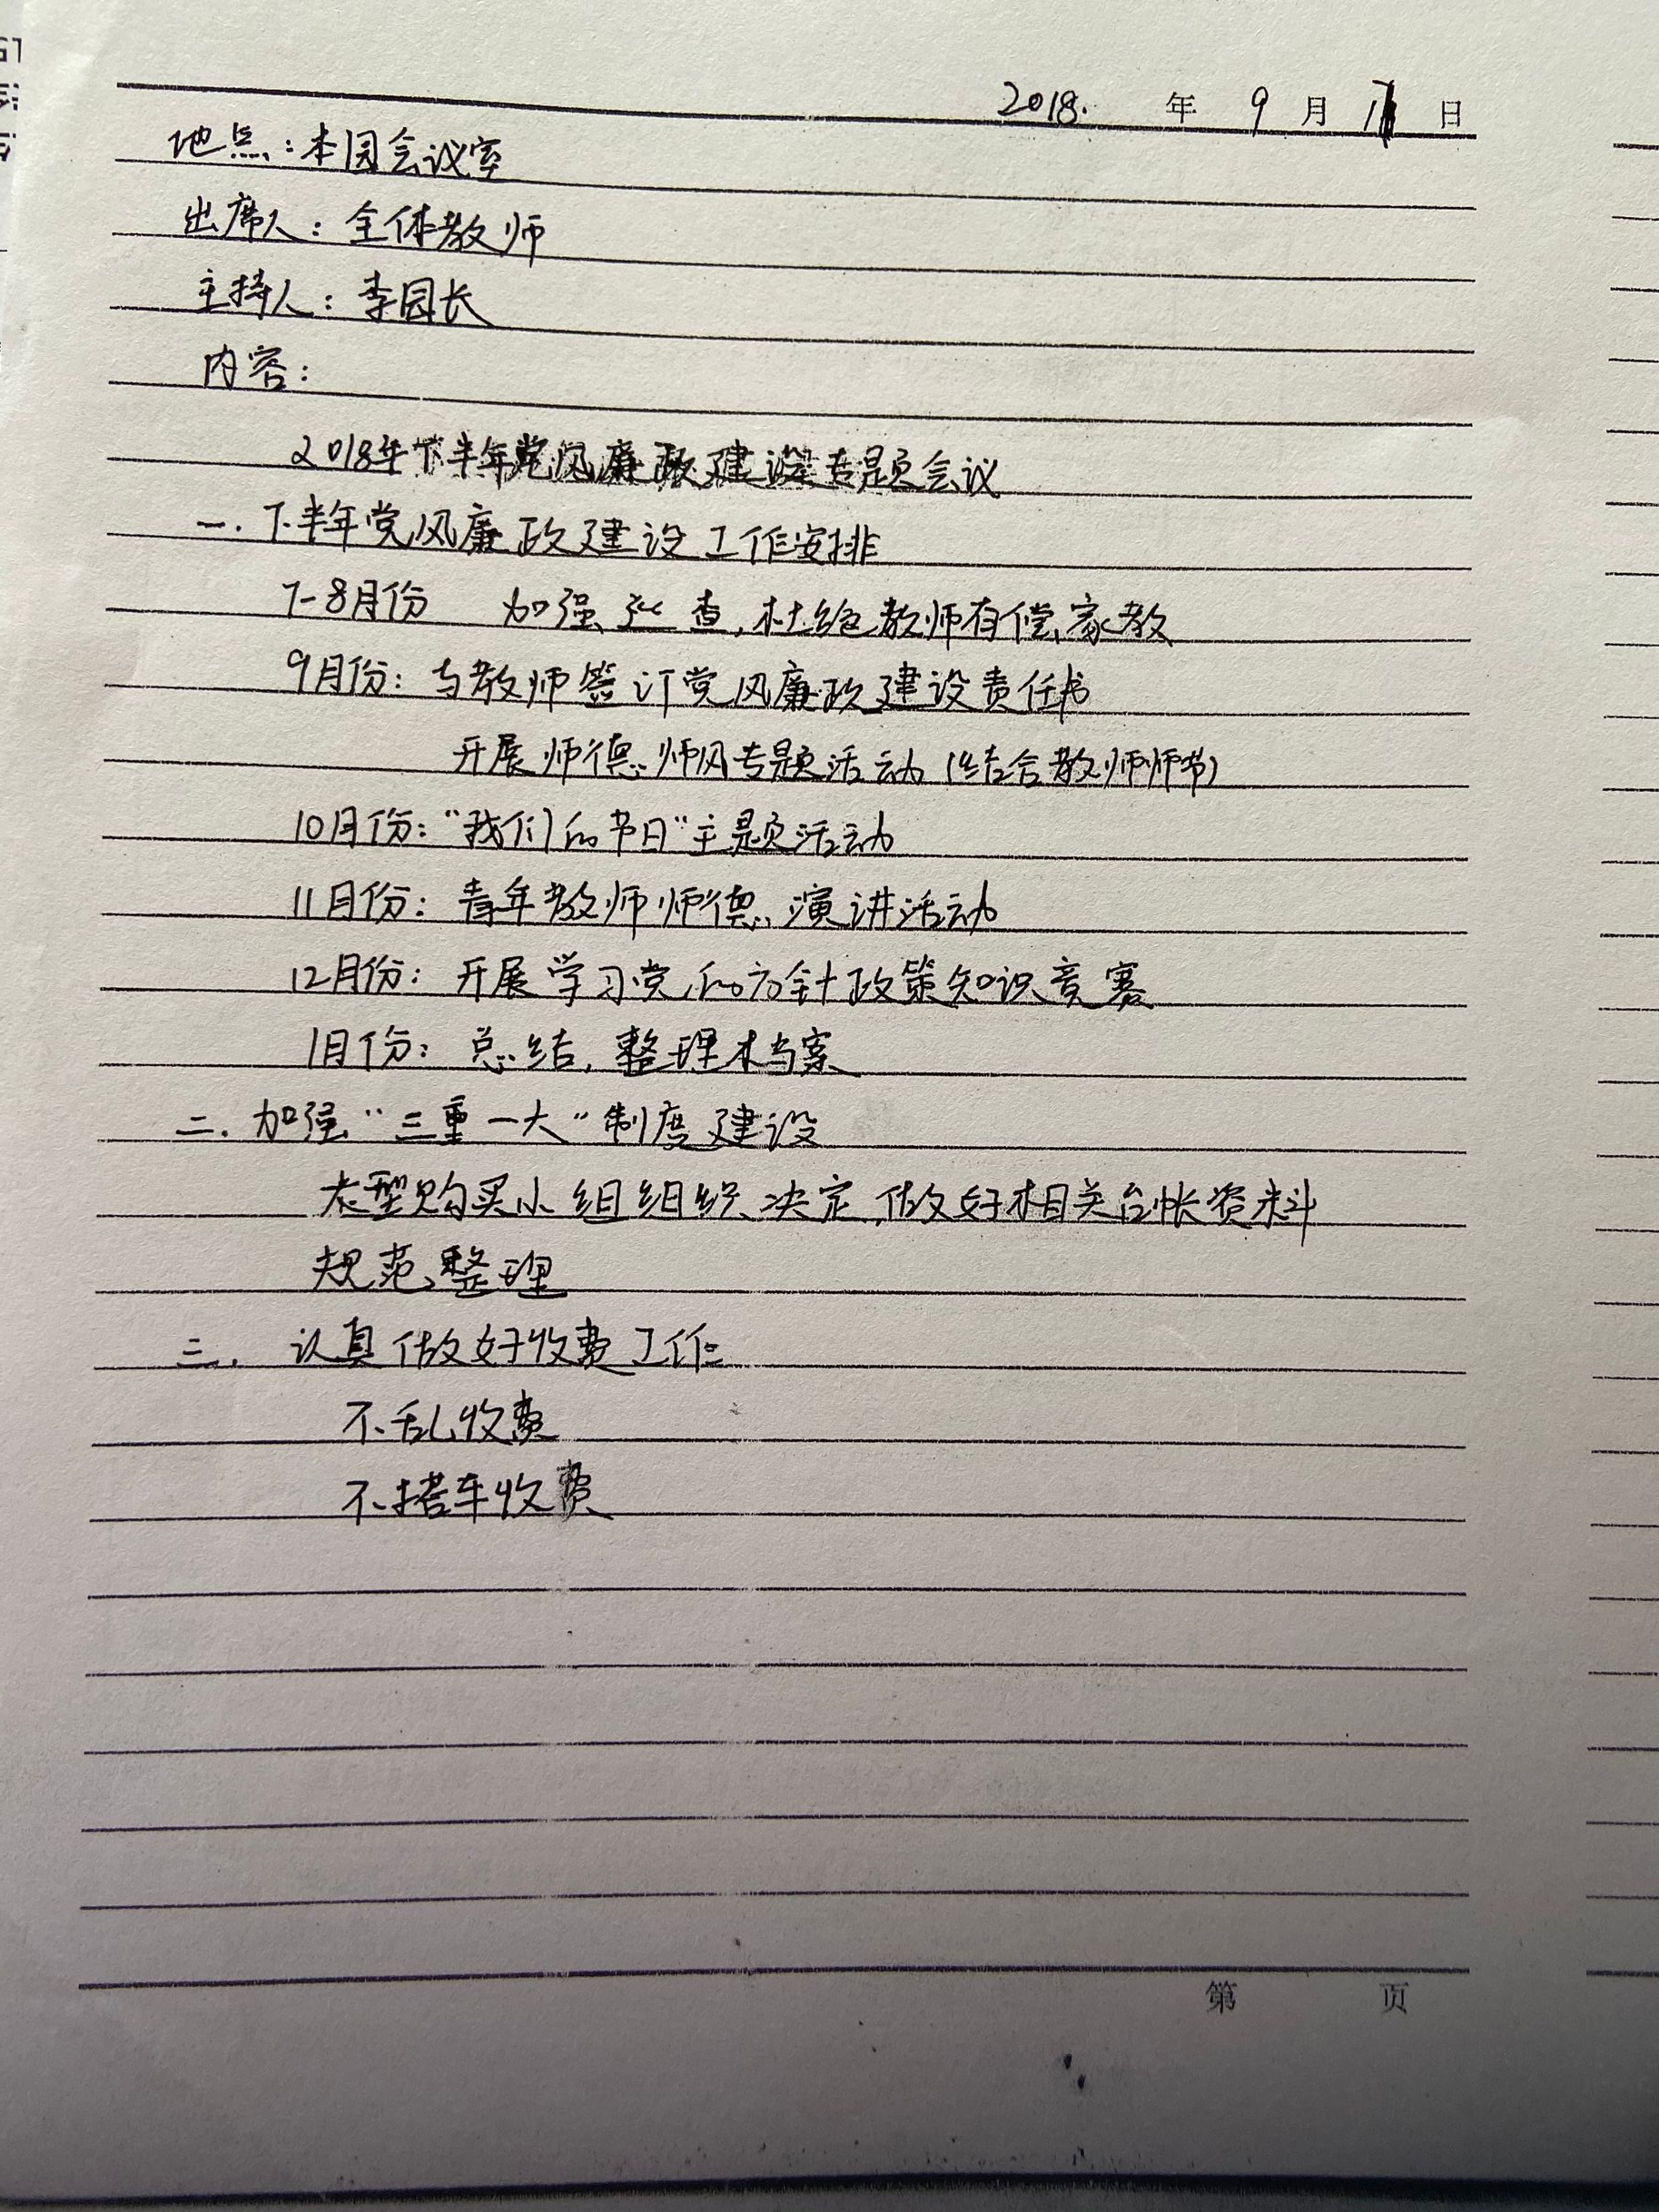 2018. 年 9 月 11 日
地点：本园会议室
出席人：全体教师
主持人：李园长
内容：
2018年下半年党风廉政建设专题会议
一. 下半年党风廉政建设工作安排
7-8月份 加强 查，杜绝教师有偿家教
9月份：与教师签订党风廉政建设责任书
开展师德师风专题活动（结合教师师节）
10月份：“我们的节日”主题活动
11月份：青年教师师德演讲活动
12月份：开展学习党的方针政策知识竞赛
1月份：总结，整理档案
二. 加强“三重一大”制度建设
大型购买小组组织决定，做好相关台帐资料
规范整理
三. 认真做好收费工作
不乱收费
不搭车收费
第 页